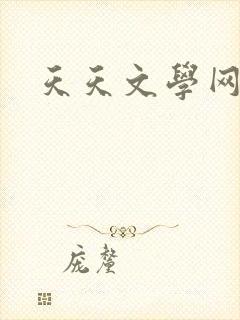 天天文學网
庞厘